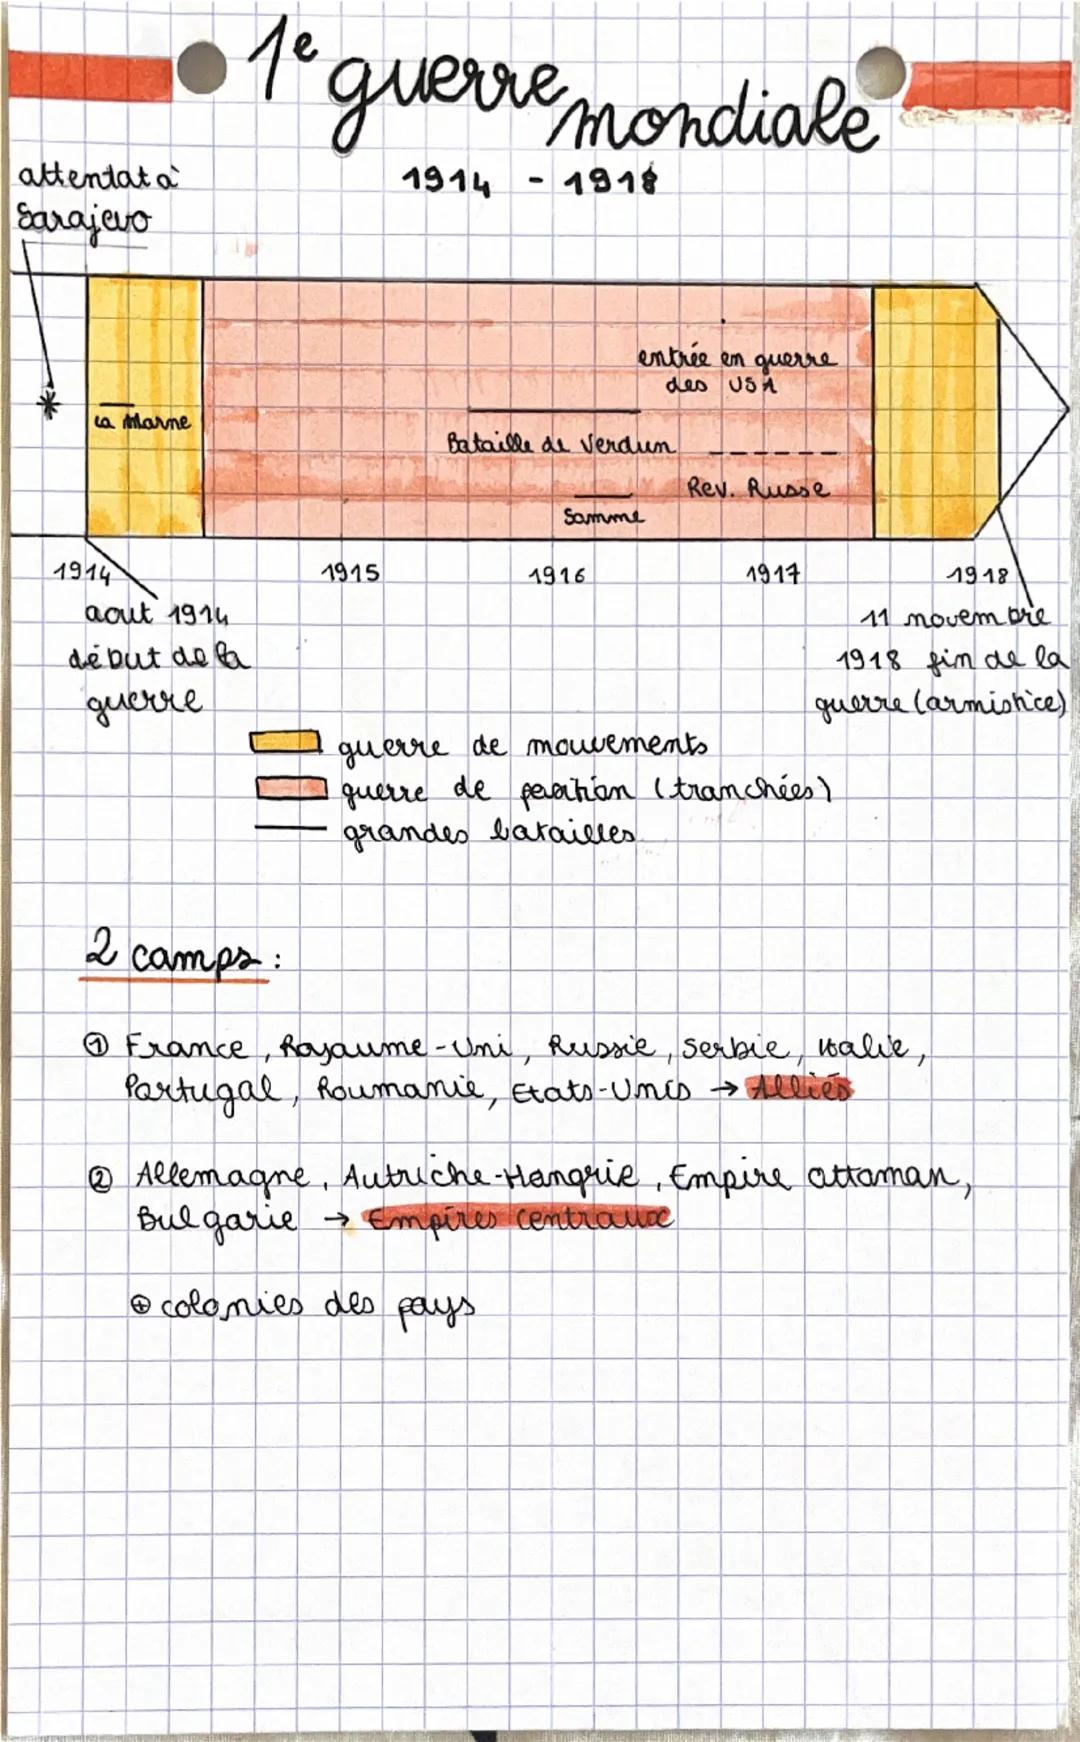 1e guerre mondiale
1914 - 1918
attentat à
Sarajevo
entrée en guerre
des USA
La Marne
Bataille de Verdun
Rev. Russe
Somme
1914
1915
1916
1917
1918
aout 1914
début de la
guerre
11 novembre
1918 fin de la
guerre (armistice)
guerre de mouvements
guerre de position (tranchées)
grandes batailles
2 camps :
① France, Royaume-Uni, Russie, Serbie, Italie,
Portugal, Roumanie, Etats-Unis → Alliés
② Allemagne, Autriche-Hongrie, Empire ottoman,
Bulgarie → Empires centraux
⊕ colonies des pays